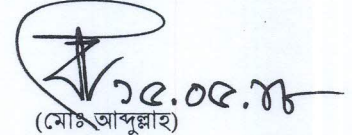 ১৫.০৫.
(মোঃ আব্দুল্লাহ)